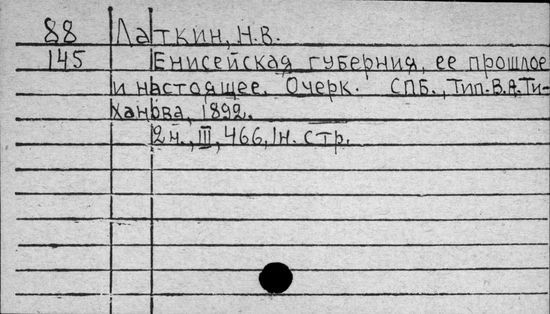 88 Латкин, Н.В.
145 Енисейская губерния, ее прошлое
и настоящее. Очерк. СПБ., Тип. В.А. Ти-
ханова, 1892.
2н., III, 466, 1н. стр.